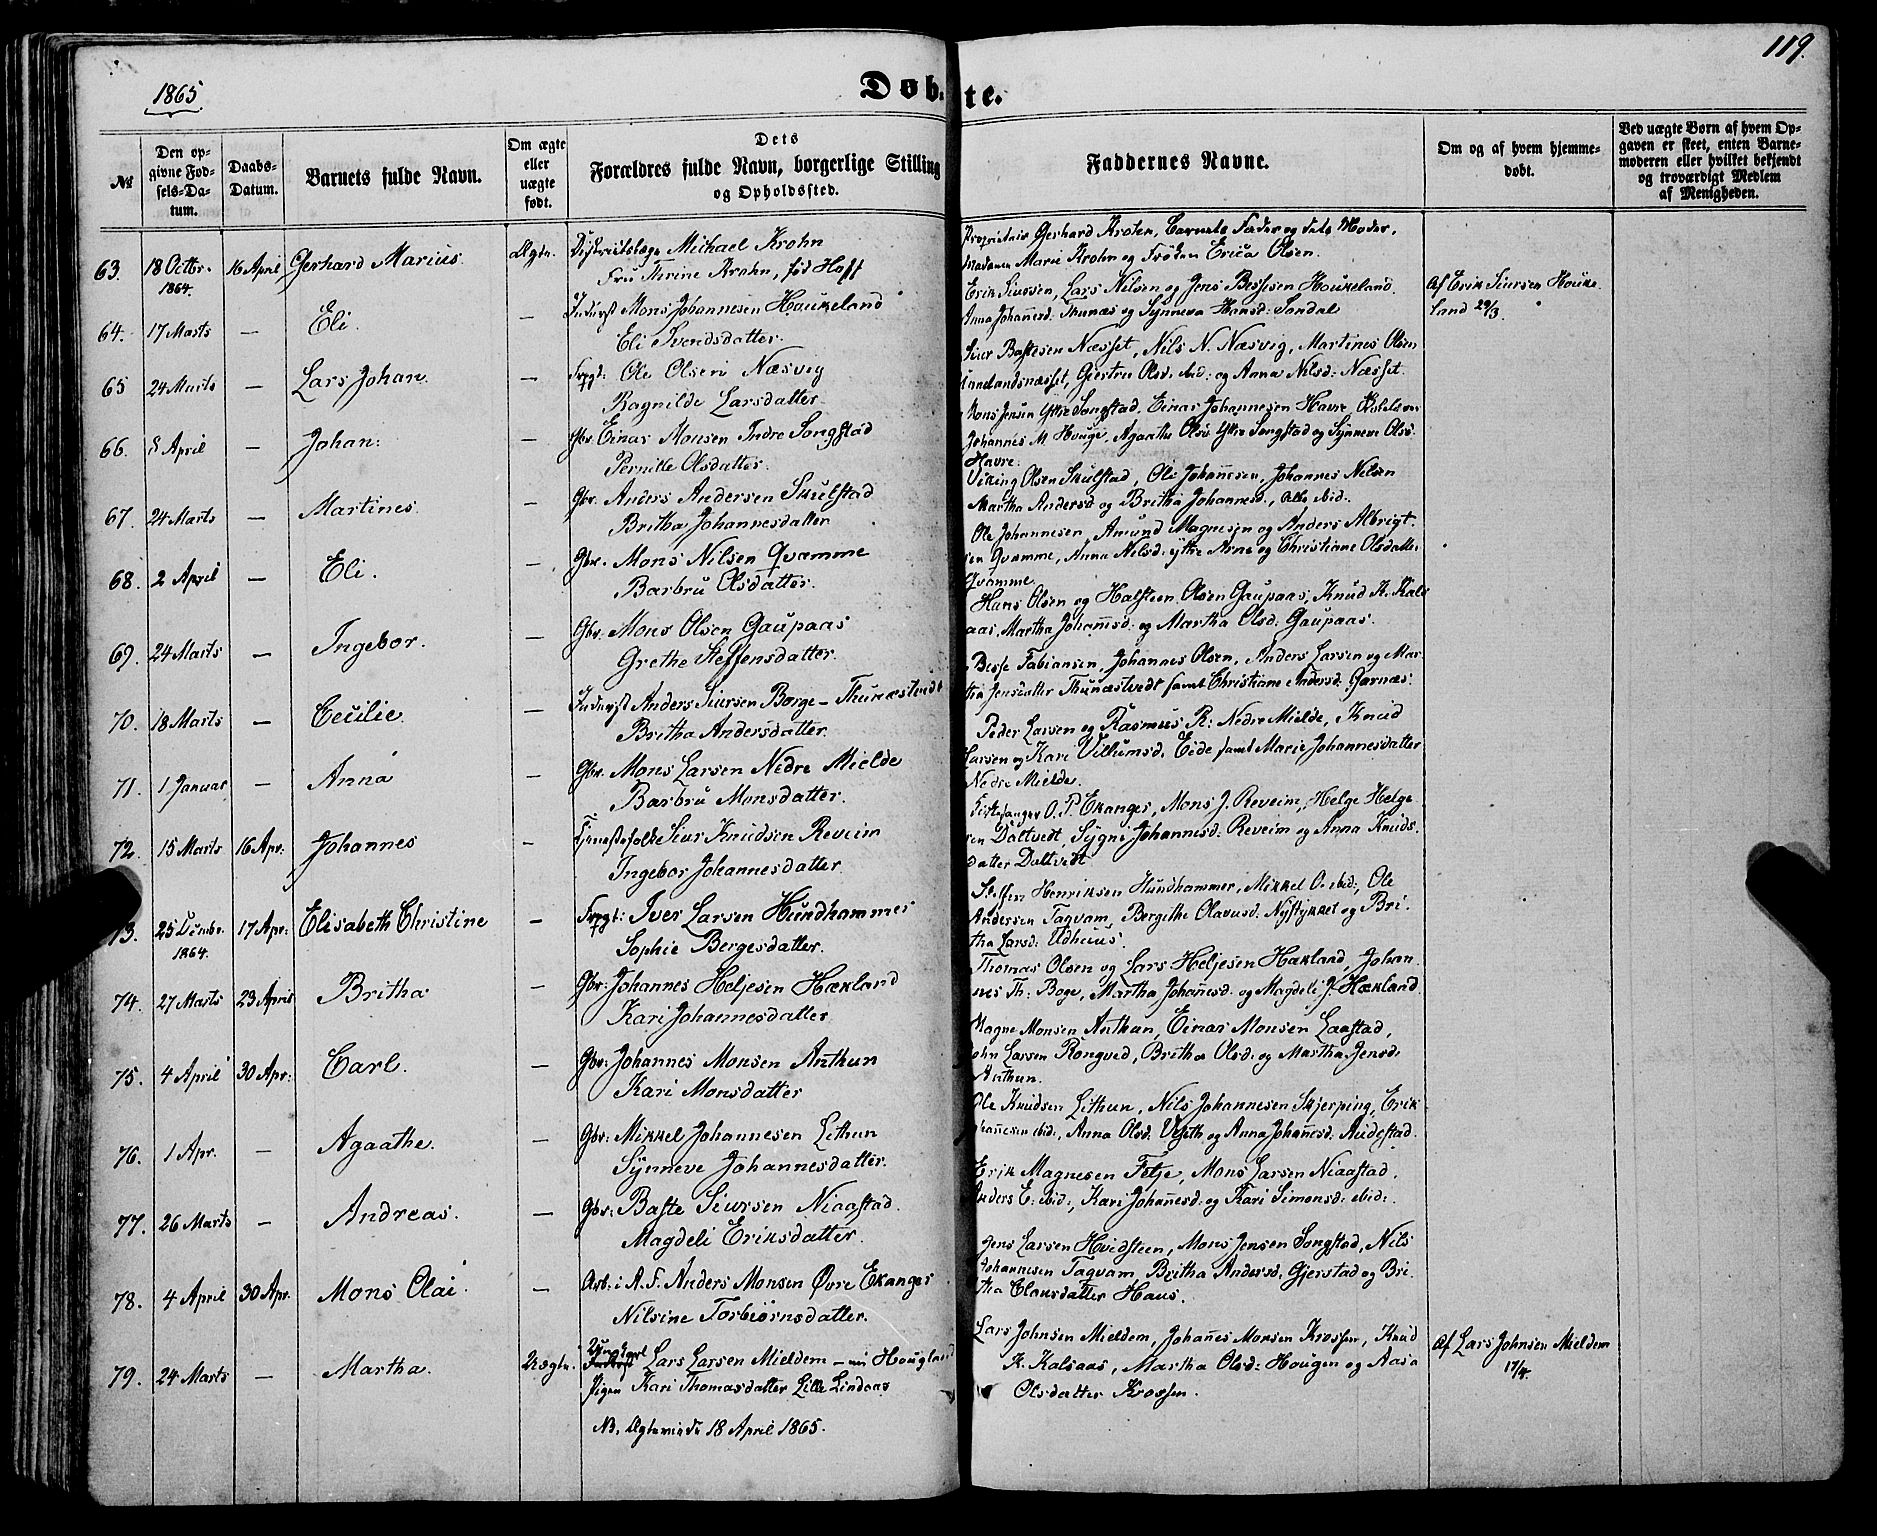 119.
1865
Døbte.
№
Den op-
givne Fød-
sels-Da-
tum.
Daabs-
Datum.
Barnets fulde Navn.
Om ægte
eller
uægte
født.
Dets
Forældres fulde Navn, borgerlige Stilling
og Opholdssted.
Faddernes Navne.
Om og af hvem hjemme-
døbt.
Ved uægte Børn af hvem Op-
gaven er skeet, enten Barne-
moderen eller hvilket bekjendt
og troværdigt Medlem
af Menigheden.
63. 18 Octbr. 1864. 16 April Gerhard Marius Ægte. Districtslæge Michael Krohn
Fru Thrine Krohn, fød Hoff
Proprietair Gerhard Krohn, Barnets Fader og dets Moder,
Madame Marie Krohn og Frøken Erica Olsen.
64. 17 Marts — Eli — Inderst Mons Johannesen Houkeland
Eli Svendsdatter.
Erik Siursen, Lars Nilsen og Jens Bessesen Houkeland
Anna Johannesd: Thunæs og Synneva Hansd: Sandal
Af Erik Siursen Houke-
land 29/3.
65 24 Marts — Lars Johan — Ole Olsen Næsvig
Ragnilde Larsdatter
Siur Bastesen Næsset, Nils N. Næsvig, Martines Olsen
Giertru Olsd: ibid: og Anna Nilsd: Næsset.
66. 8 April — Johan: — Gbr. Einar Monsen Indre Songstad
Pernille Olsdatter.
Mons Jensen Yttre Songstad, Einar Johannesen Havre,
Johannes M Houge, Agaathe Olsd Yttre Songstad og Synneve Olsd.
Havre.
67. 24 Marts — Martines. — Gbr. Anders Andersen Skulstad
Britha Johannesdatter
Viking Olsen Skulstad, Ole Johannesen, Johannes Nilsen
Martha Andersd og Britha Johannesd., alle ibid.
68. 2 April — Eli. — Gbr. Mons Nilsen Qvamme
Barbru Olsdatter.
Ole Johannesen, Amund Magnesen og Anders Albrigt-
sen Qvamme, Anna Nilsd: ytre Arne og Christiane Olsdatter
Qvamme
69. 24 Marts — Ingebor. — Gbr. Mons Olsen Gaupaas
Grethe Steffensdatter.
Hans Olsen og Halsteen Olsen Gaupaas, Knud K. Kals
aas, Martha Johannesd: og Martha Olsd. Gaupaas.
70. 18 Marts — Cecilie — Inderst Anders Siursen Borge - Thunæstvedt
Britha Andersdatter
Besse Fabiansen, Johannes Olsen, Anders Larsen og Mar-
tha Jensdatter Thunæstvedt samt Christiane Andersd: Garnæs.
71. 1 Januar — Anna — Gbr. Mons Larsen Nedre Mielde
Barbru Monsdatter.
Peder Larsen og Rasmus R: Nedre Mielde, Knud
Larsen og Kari Villumsd. Eide samt Marie Johannesdatter
Nedre Mielde.
72. 15 Marts 16 Apr. Johannes — Tjenestefolk Siur Knudsen Reveim
Ingebor Johannesdatter
Kirkesanger O. P. Ekanger, Mons J. Reveim, Helge Helge-
sen Daltvedt, Sygni Johannesd: Reveim og Anna Knuds-
datter Daltvedt
73. 25 Decmbr. 1864. 17 Apr: Elisabeth Christine — Iver Larsen Hundhammer
Sophie Bergesdatter.
Steffen Henriksen Hundhammer, Mikkel O. ibid:, Ole
Andersen Tagvam, Bergithe Olavusd. Nystykket og Bri-
tha Larsd: Udhuus.
74. 27 Marts 23 April Britha — Gbr: Johannes Heljesen Hækland
Kari Johannesdatter
Thomas Olsen og Lars Heljesen Hækland, Johan-
nes Th: Boge, Martha Johanesd: og Magdeli J. Hækland
75. 4 April 30 Apr: Carl. — Gbr: Johannes Monsen Anthun
Kari Monsdatter
Magne Monsen Anthun, Einar Monsen Laastad,
John Larsen Rongved, Britha Olsd: og Martha Jensd:
Anthun.
76. 1 Apr. — Agaathe. — Gbr: Mikkel Johannesen Lithun
Synneve Johannesdatter.
Ole Knudsen Lithun, Nils Johannesen Skjerping, Erik
Johannesen ibid:, Anna Olsd: Vefeth og Anna Johanesd: Audestad.
77. 26 Marts — Andreas. — Gbr: Baste Siursen Niaastad
Magdeli Eriksdatter.
Erik Magnesen Fetje, Mons Larsen Niaastad.
Anders E: ibid:, Kari Johannesd: og Kari Simonsd: ibid:
78. 4 April 30 Apr. Mons Olai — Arb. i A. F. Anders Monsen Øvre Ekanger
Nilsine Torbiørnsdatter.
Jens Larsen Hvidsteen, Mons Jensen Songstad, Nils
Johannesen Tagvam, Britha Andersd. Gjerstad og Bri-
tha Clausdatter Haus.
79. 24 Marts — Martha. Uægte. Ungkarl Lars Larsen Mieldem - nu Hougland
Pigen Kari Thomasdatter Lille Lindaas
NB. Ægteviede 18 April 1865.
Lars Johnsen Mieldem, Johanes Monsen Krossen, Knud
K. Kalsaas, Martha Olsd: Hougen og Aasa
Olsdatter Krossen.
Af Lars Johnsen Mieldem
17/4.